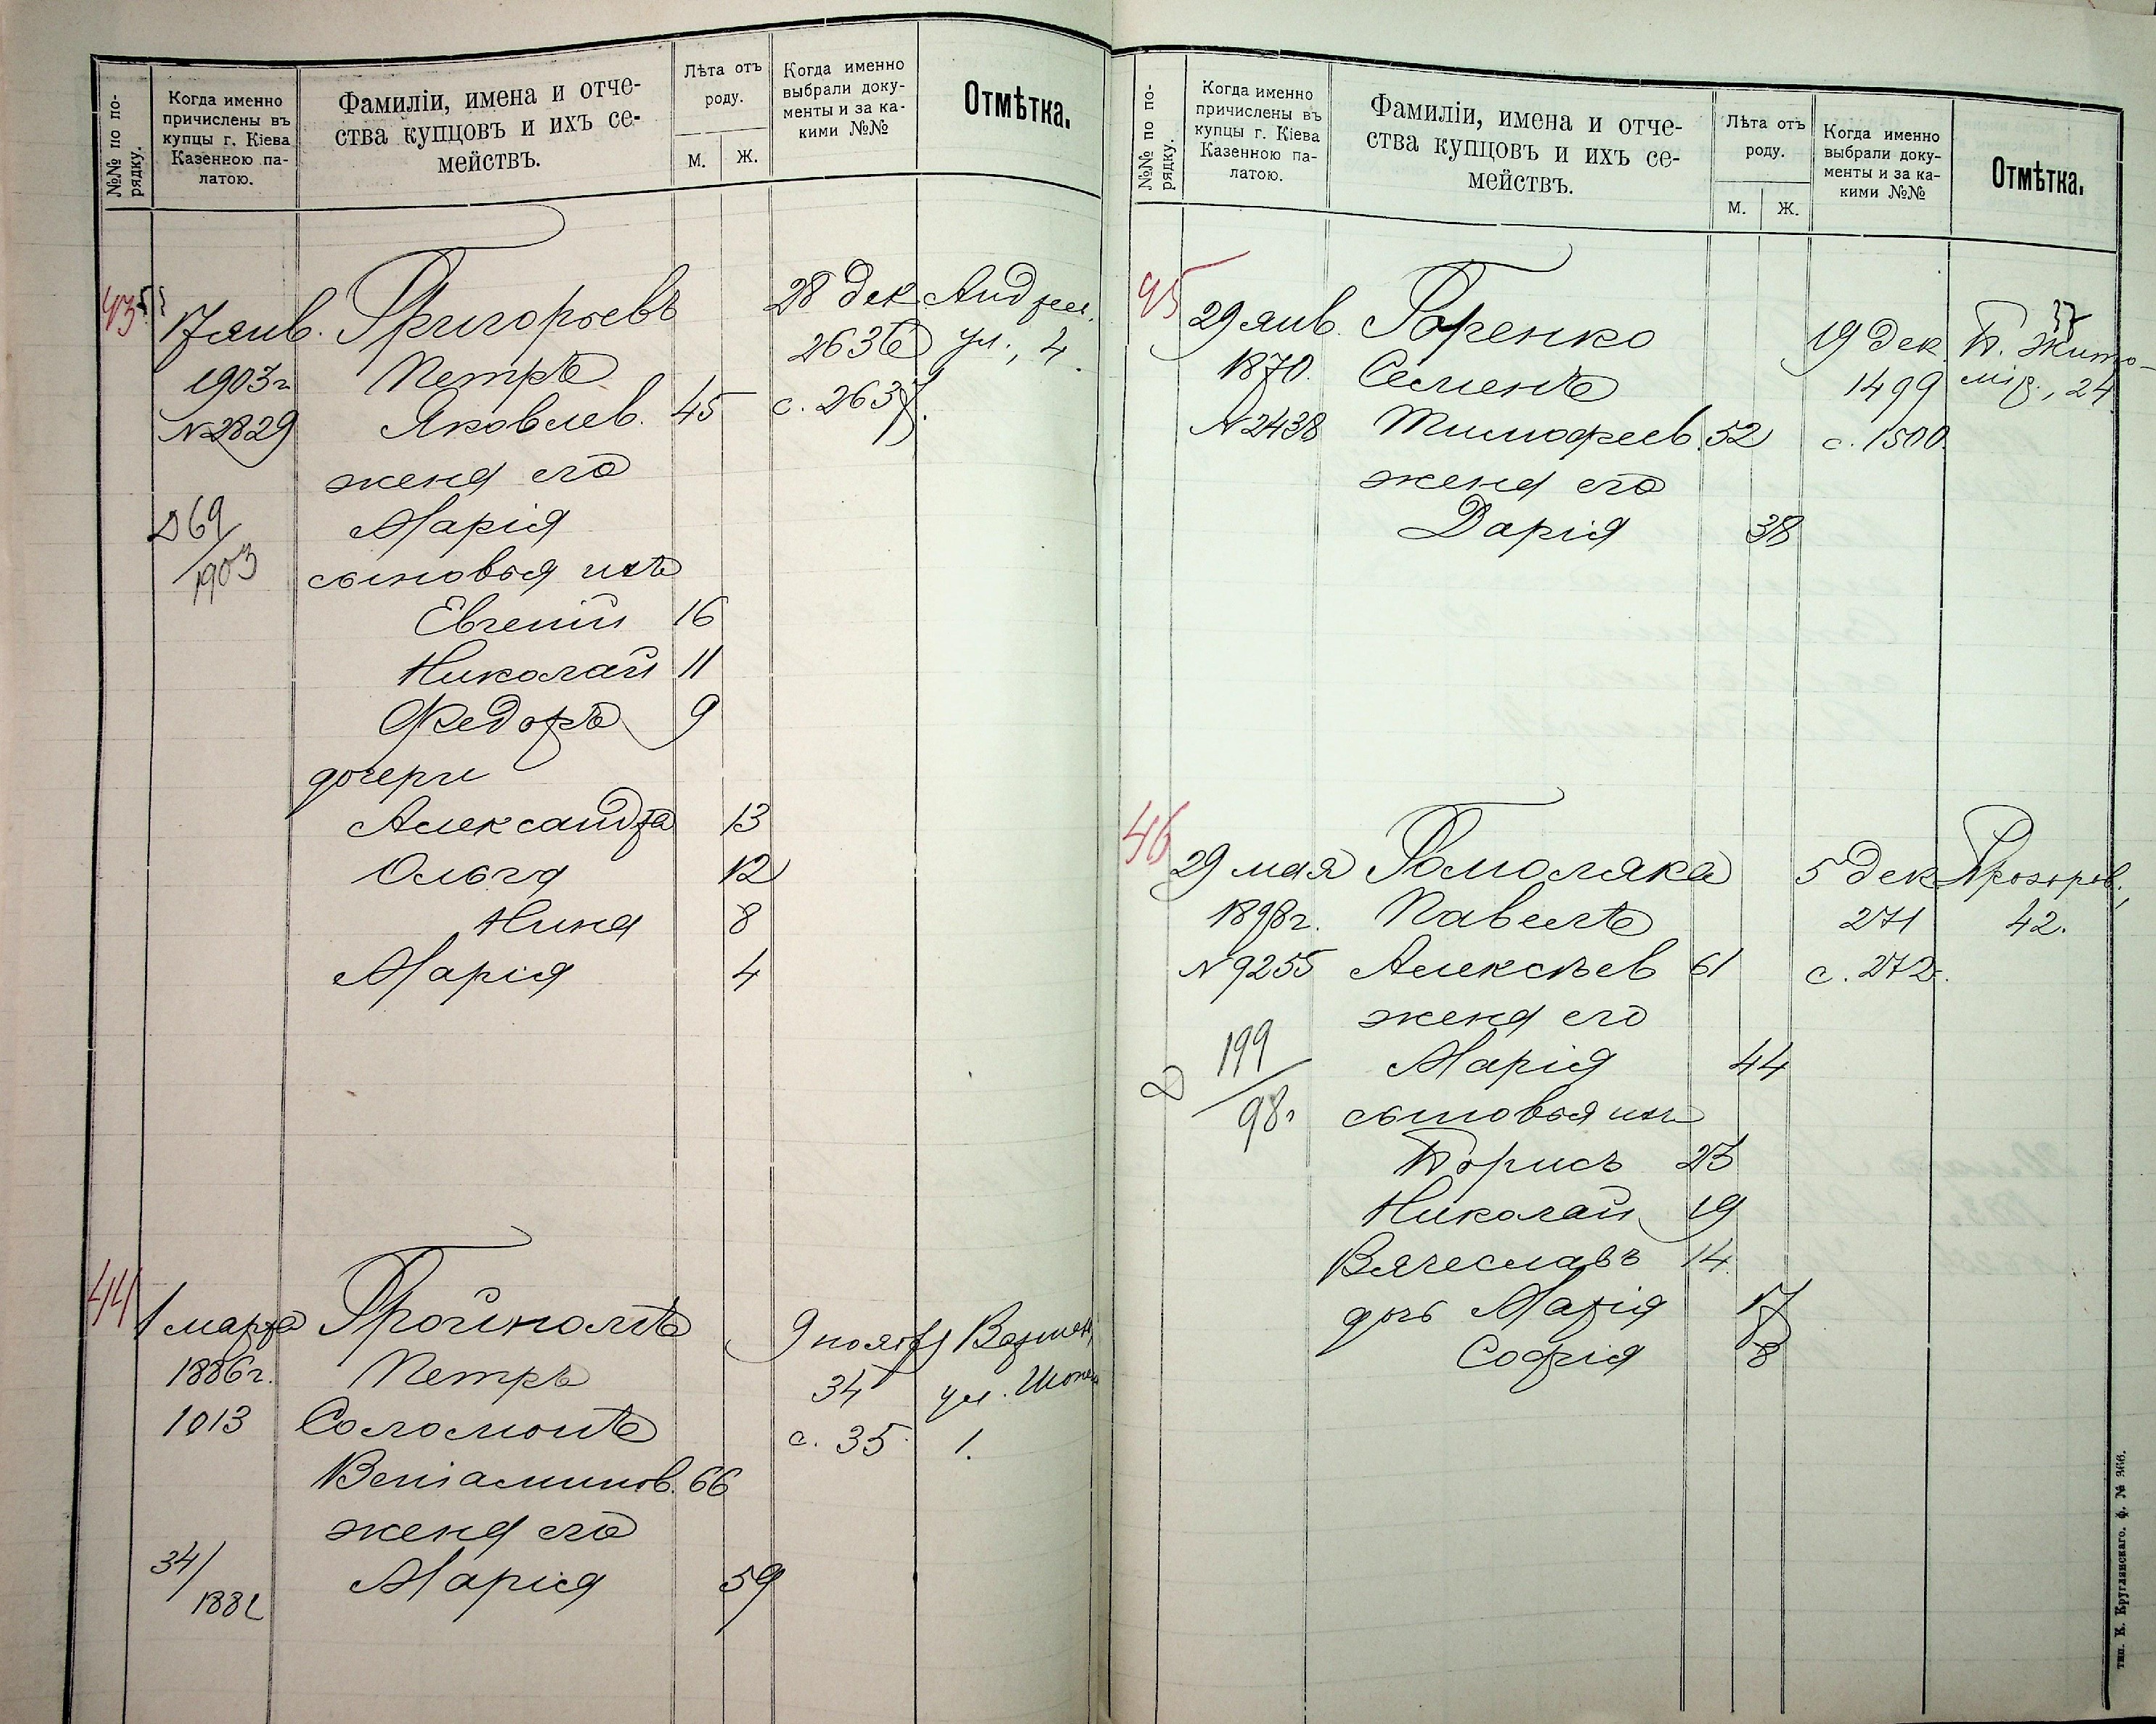 №№ по по-
рядку.
Когда именно
причислены въ
купцы г. Кіева
Казенною па-
латою.
Фамиліи, имена и отче-
ства купцовъ и ихъ се-
мействъ.
Лѣта отъ
роду.
м.
ж.
Когда именно
выбрали доку-
менты и за ка-
кими №№
Отмѣтка.
43
17 янв. Григорьевъ 28 дек. Андреев.
1903 г. Петръ 2636 ул., 4.
№2829 Яковлев. 45 с. 2637.
жена его
Д 69/1903 Марія
сыновья ихъ
Евгеній 16
Николай 11
Федоръ 9
дочери
Александра 13
Ольга 12
Нина 8
Марія 4
44
1 марта Гройнолтъ 9 ноября
1886 г. Петръ 34 ул.
1013 Соломонъ с. 35 1.
Веніаминов. 66
жена его
34/ Марія 59
№№ по по-
рядку.
Когда именно
причислены въ
купцы г. Кіева
Казенною па-
латою.
Фамиліи, имена и отче-
ства купцовъ и ихъ се-
мействъ.
Лѣта отъ
роду.
м.
ж.
Когда именно
выбрали доку-
менты и за ка-
кими №№
Отмѣтка.
45
29 янв. Горенко 19 дек. Б. Жито-
1870. Семенъ 1499 мір., 24
№2438 Тимофеев. 52 с. 1500.
жена его
Дарія 38
46
29 мая Гомоляка 5 дек. Прозоров.,
1898 г. Павелъ 271 42.
№9255 Алексѣев 61 с. 272.
жена его
199/98 г. Марія 44
сыновья ихъ
Борисъ 23
Николай 19
Вячеславъ 14
дочь Марія 17
Софія 8
тип. К. Круглянскаго. ф. № 366.